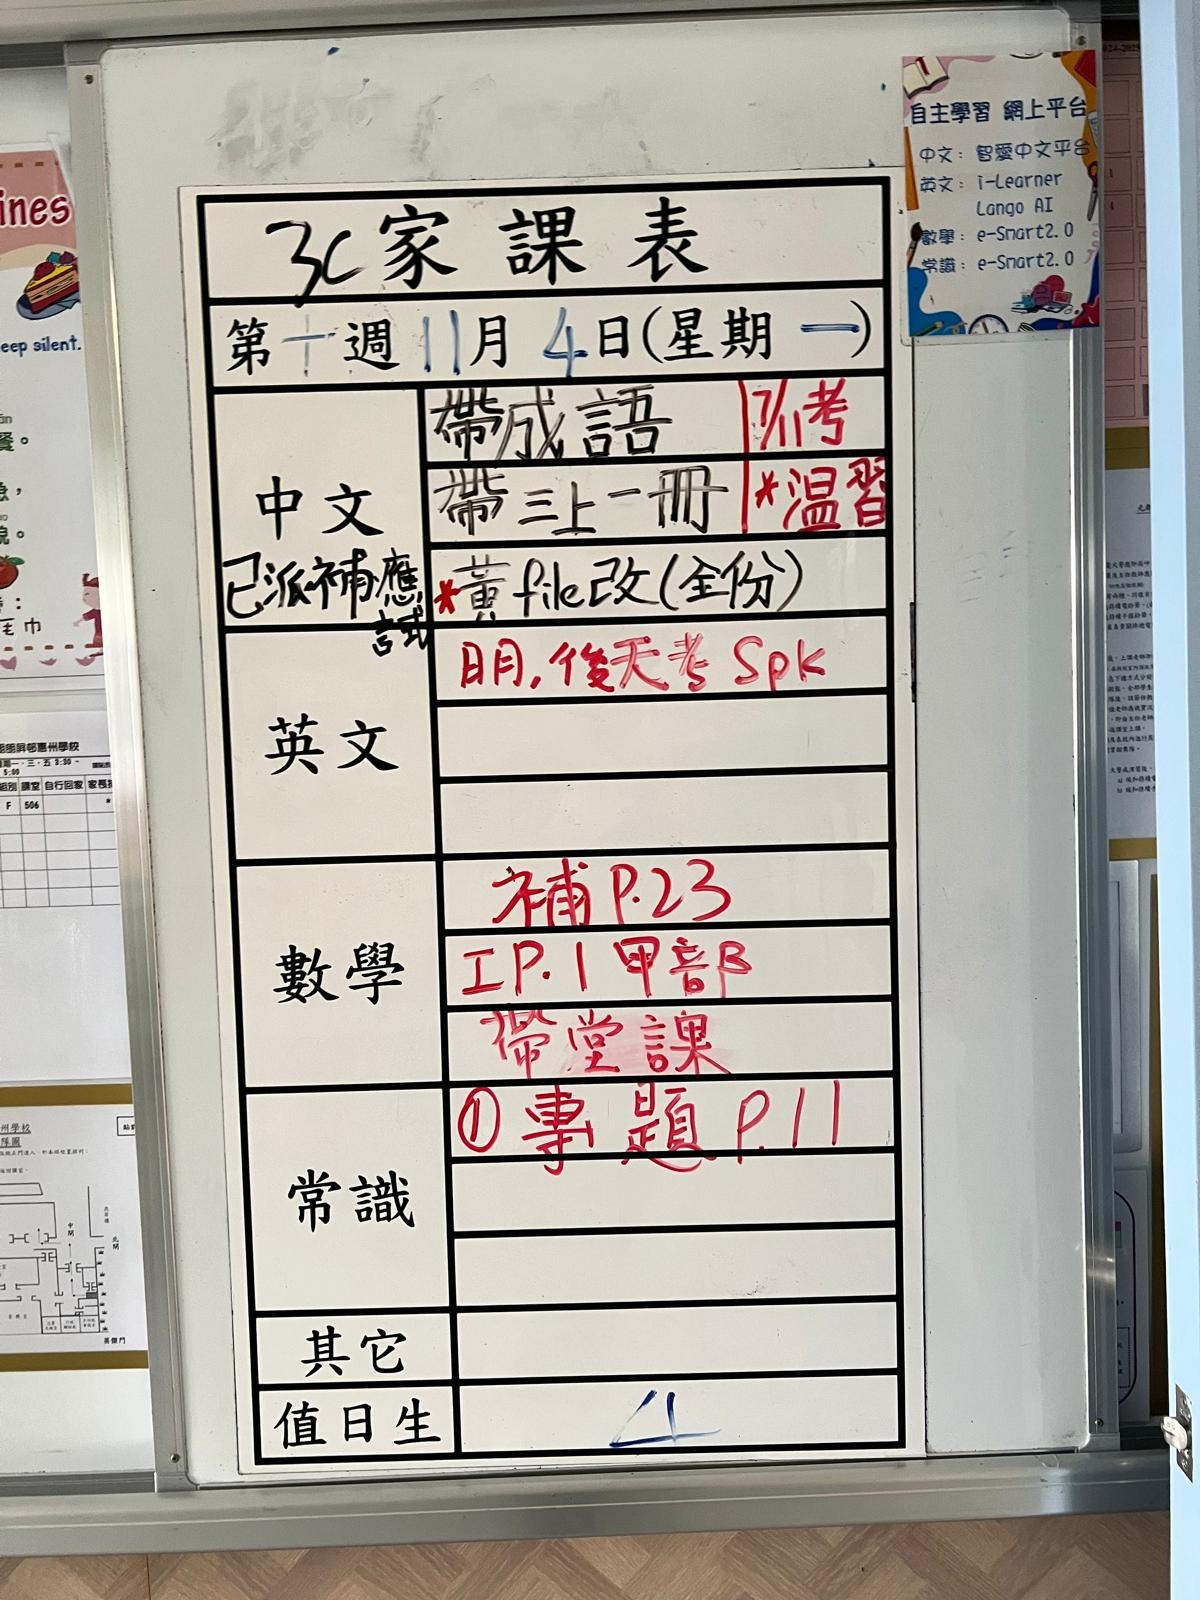 3C家課表
第十週11月4日(星期一)
中文
已派補應試
帶成語 7/11考
帶三上一冊 *温習
*黃file改(全份)
英文
明,後天考 Spk
數學
補P.23
工P.1甲部B
帶堂課
常識
①專題P.11
其它
值日生
4
自主學習 網上平台
中文: 智愛中文平台
英文: i-Learner
Lango AI
數學: e-Smart2.0
常識: e-Smart2.0
ines
eep silent.
餐。
毛巾
5:00
組別 課室 自行回家
F 506
州學校
隊圖